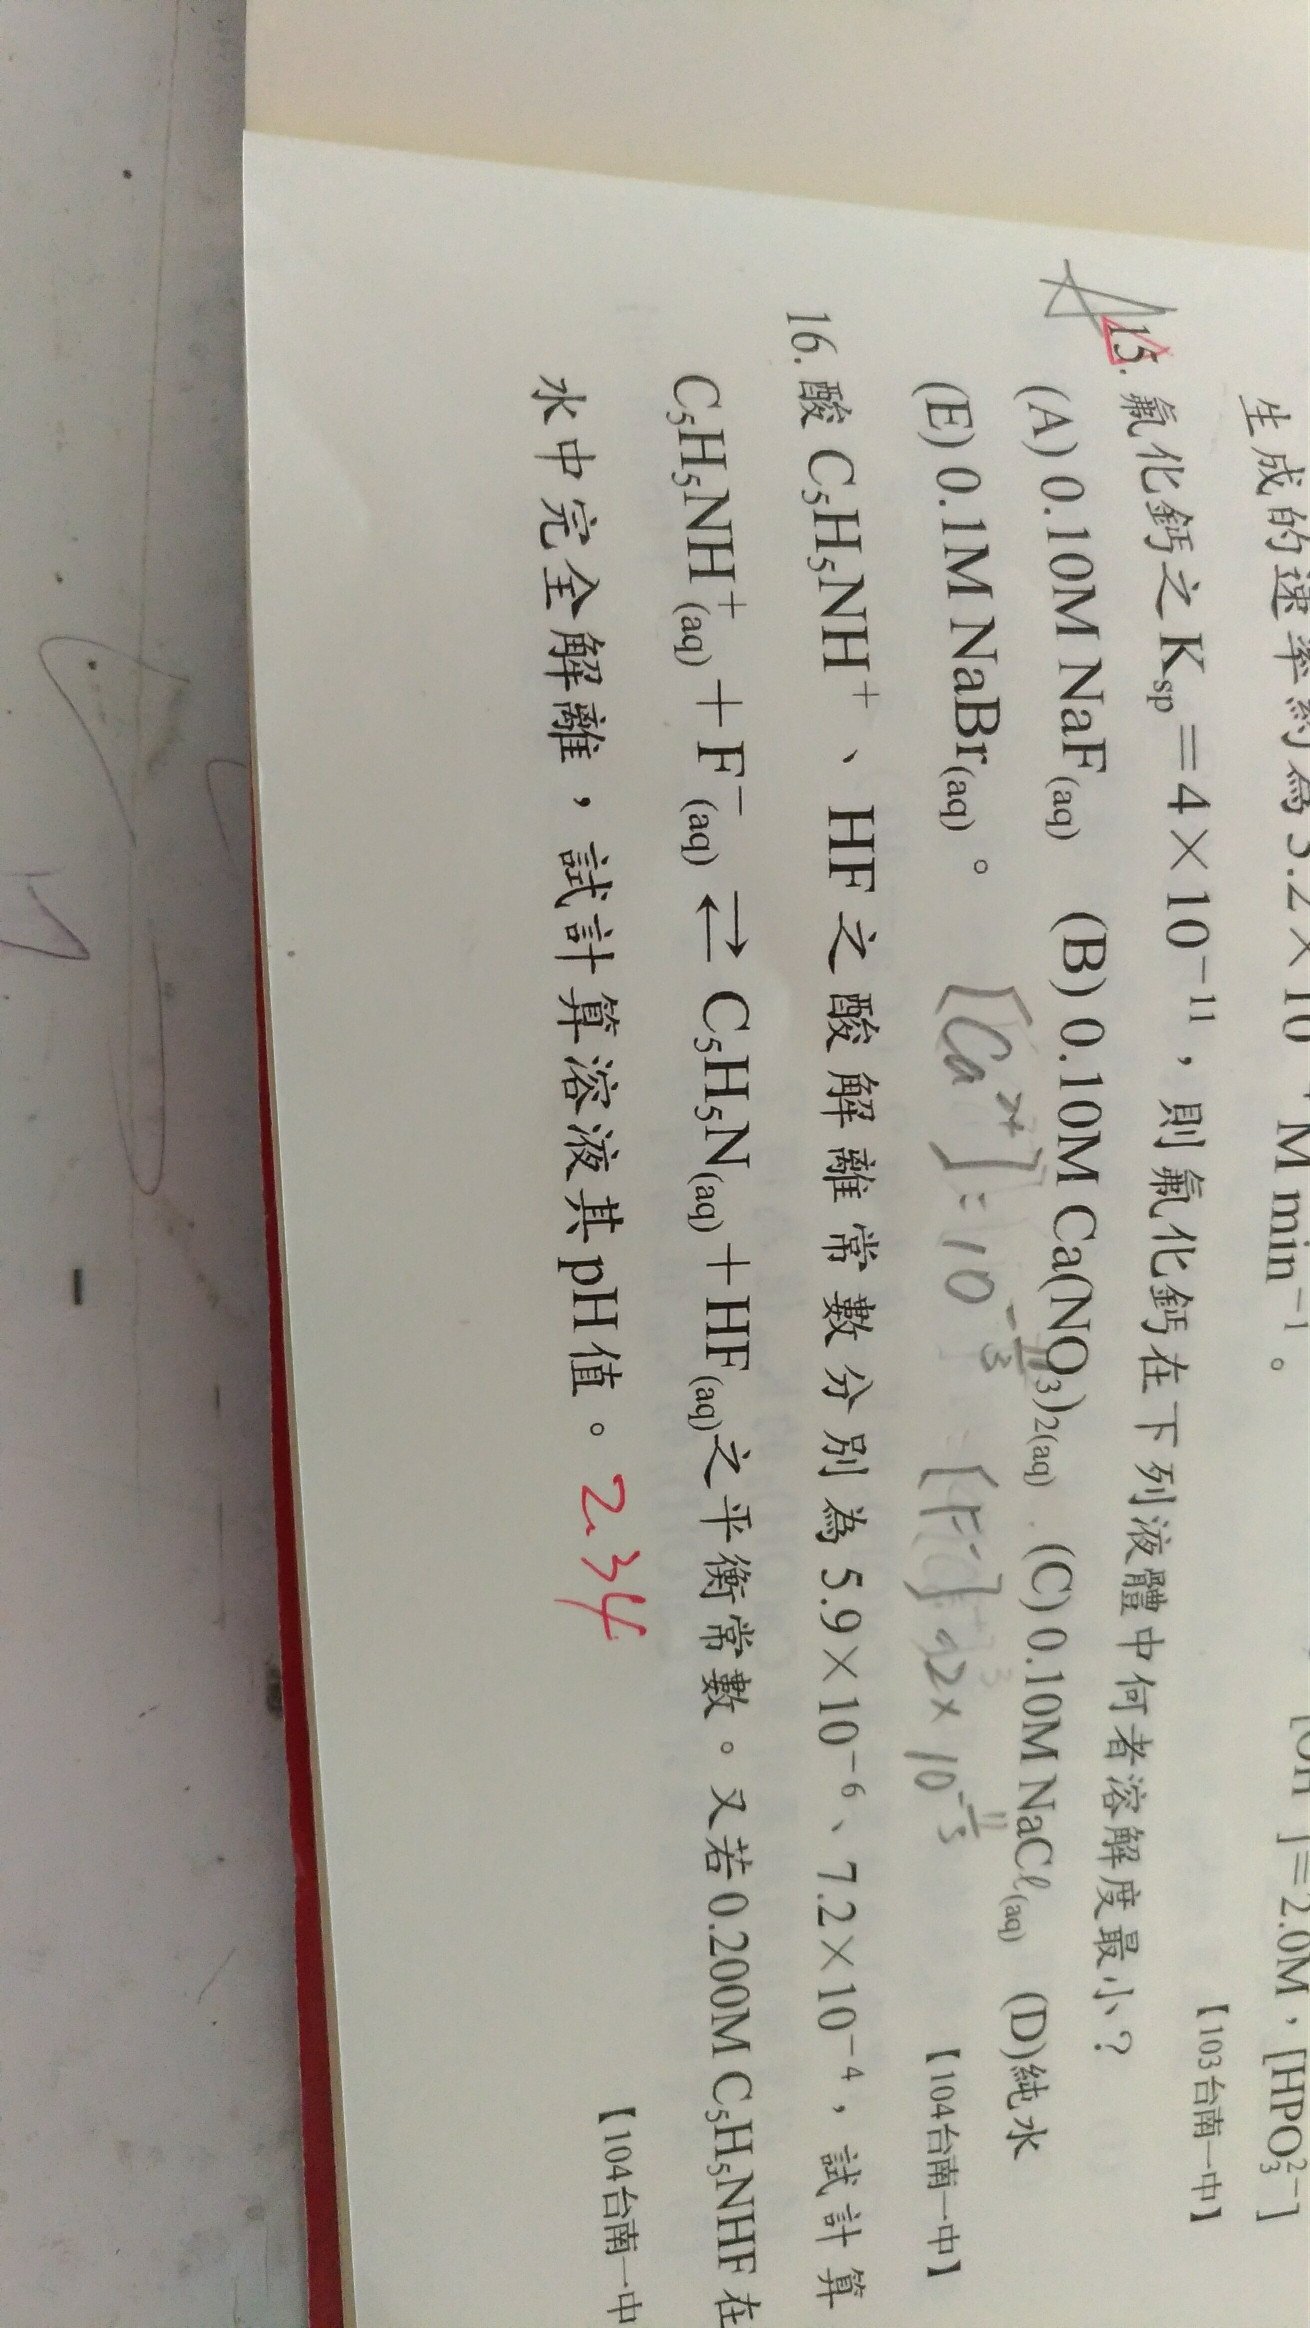 [OH⁻]=2.0M，[HPO₃²⁻]
生成的速率約為 5.2×10⁻⁴ M min⁻¹。
【103台南一中】
15. 氟化鈣之 Ksp＝4×10⁻¹¹，則氟化鈣在下列液體中何者溶解度最小？
(A) 0.10M NaF(aq) (B) 0.10M Ca(NO₃)₂(aq) (C) 0.10M NaCℓ(aq) (D)純水
(E) 0.1M NaBr(aq)。 【104台南一中】
[Ca²⁺]=10^(-11/3) [F⁻]=2×10^(-11/3)
16. 酸 C₅H₅NH⁺、HF 之酸解離常數分別為 5.9×10⁻⁶、7.2×10⁻⁴，試計算
C₅H₅NH⁺(aq)＋F⁻(aq) ⇄ C₅H₅N(aq)＋HF(aq)之平衡常數。又若0.200M C₅H₅NHF 在
水中完全解離，試計算溶液其pH值。 2.34
【104台南一中